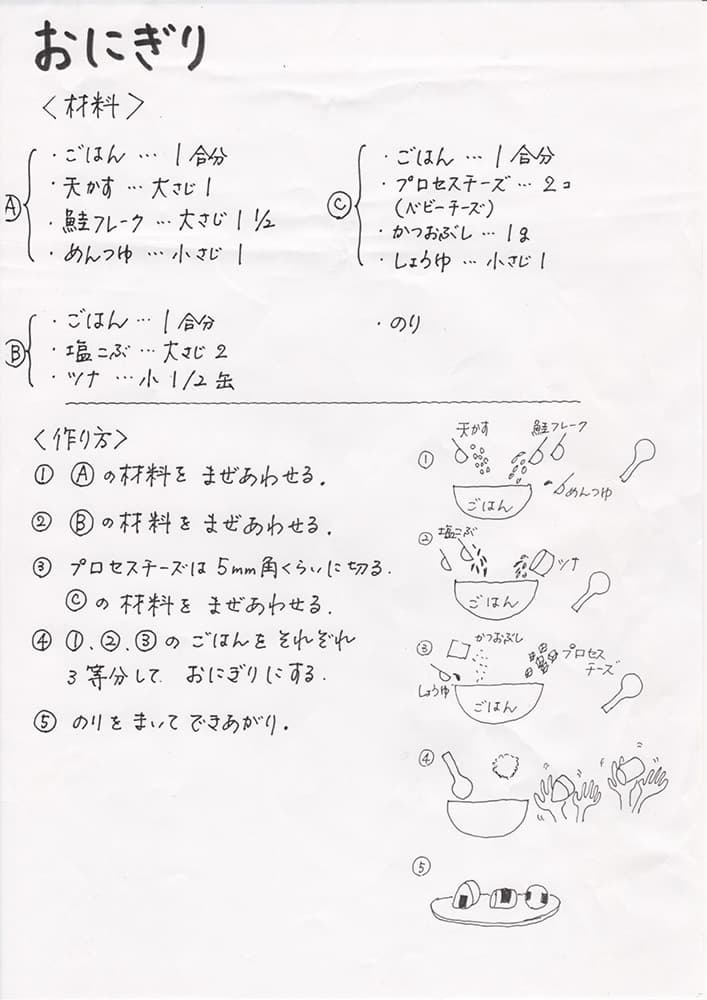 おにぎり
〈材料〉
Ⓐ
・ごはん … 1合分
・天かす … 大さじ1
・鮭フレーク … 大さじ1 1/2
・めんつゆ … 小さじ1
Ⓑ
・ごはん … 1合分
・塩こぶ … 大さじ2
・ツナ … 小 1/2缶
Ⓒ
・ごはん … 1合分
・プロセスチーズ … 2コ
(ベビーチーズ)
・かつおぶし … 1g
・しょうゆ … 小さじ1
・のり
〈作り方〉
① Ⓐの材料をまぜあわせる.
② Ⓑの材料をまぜあわせる.
③ プロセスチーズは5mm角くらいに切る.
Ⓒの材料をまぜあわせる.
④ ①、②、③のごはんをそれぞれ
3等分して おにぎりにする.
⑤ のりをまいてできあがり.
①
天かす
鮭フレーク
めんつゆ
ごはん
②
塩こぶ
ツナ
ごはん
③
かつおぶし
プロセス
チーズ
しょうゆ
ごはん
④
⑤